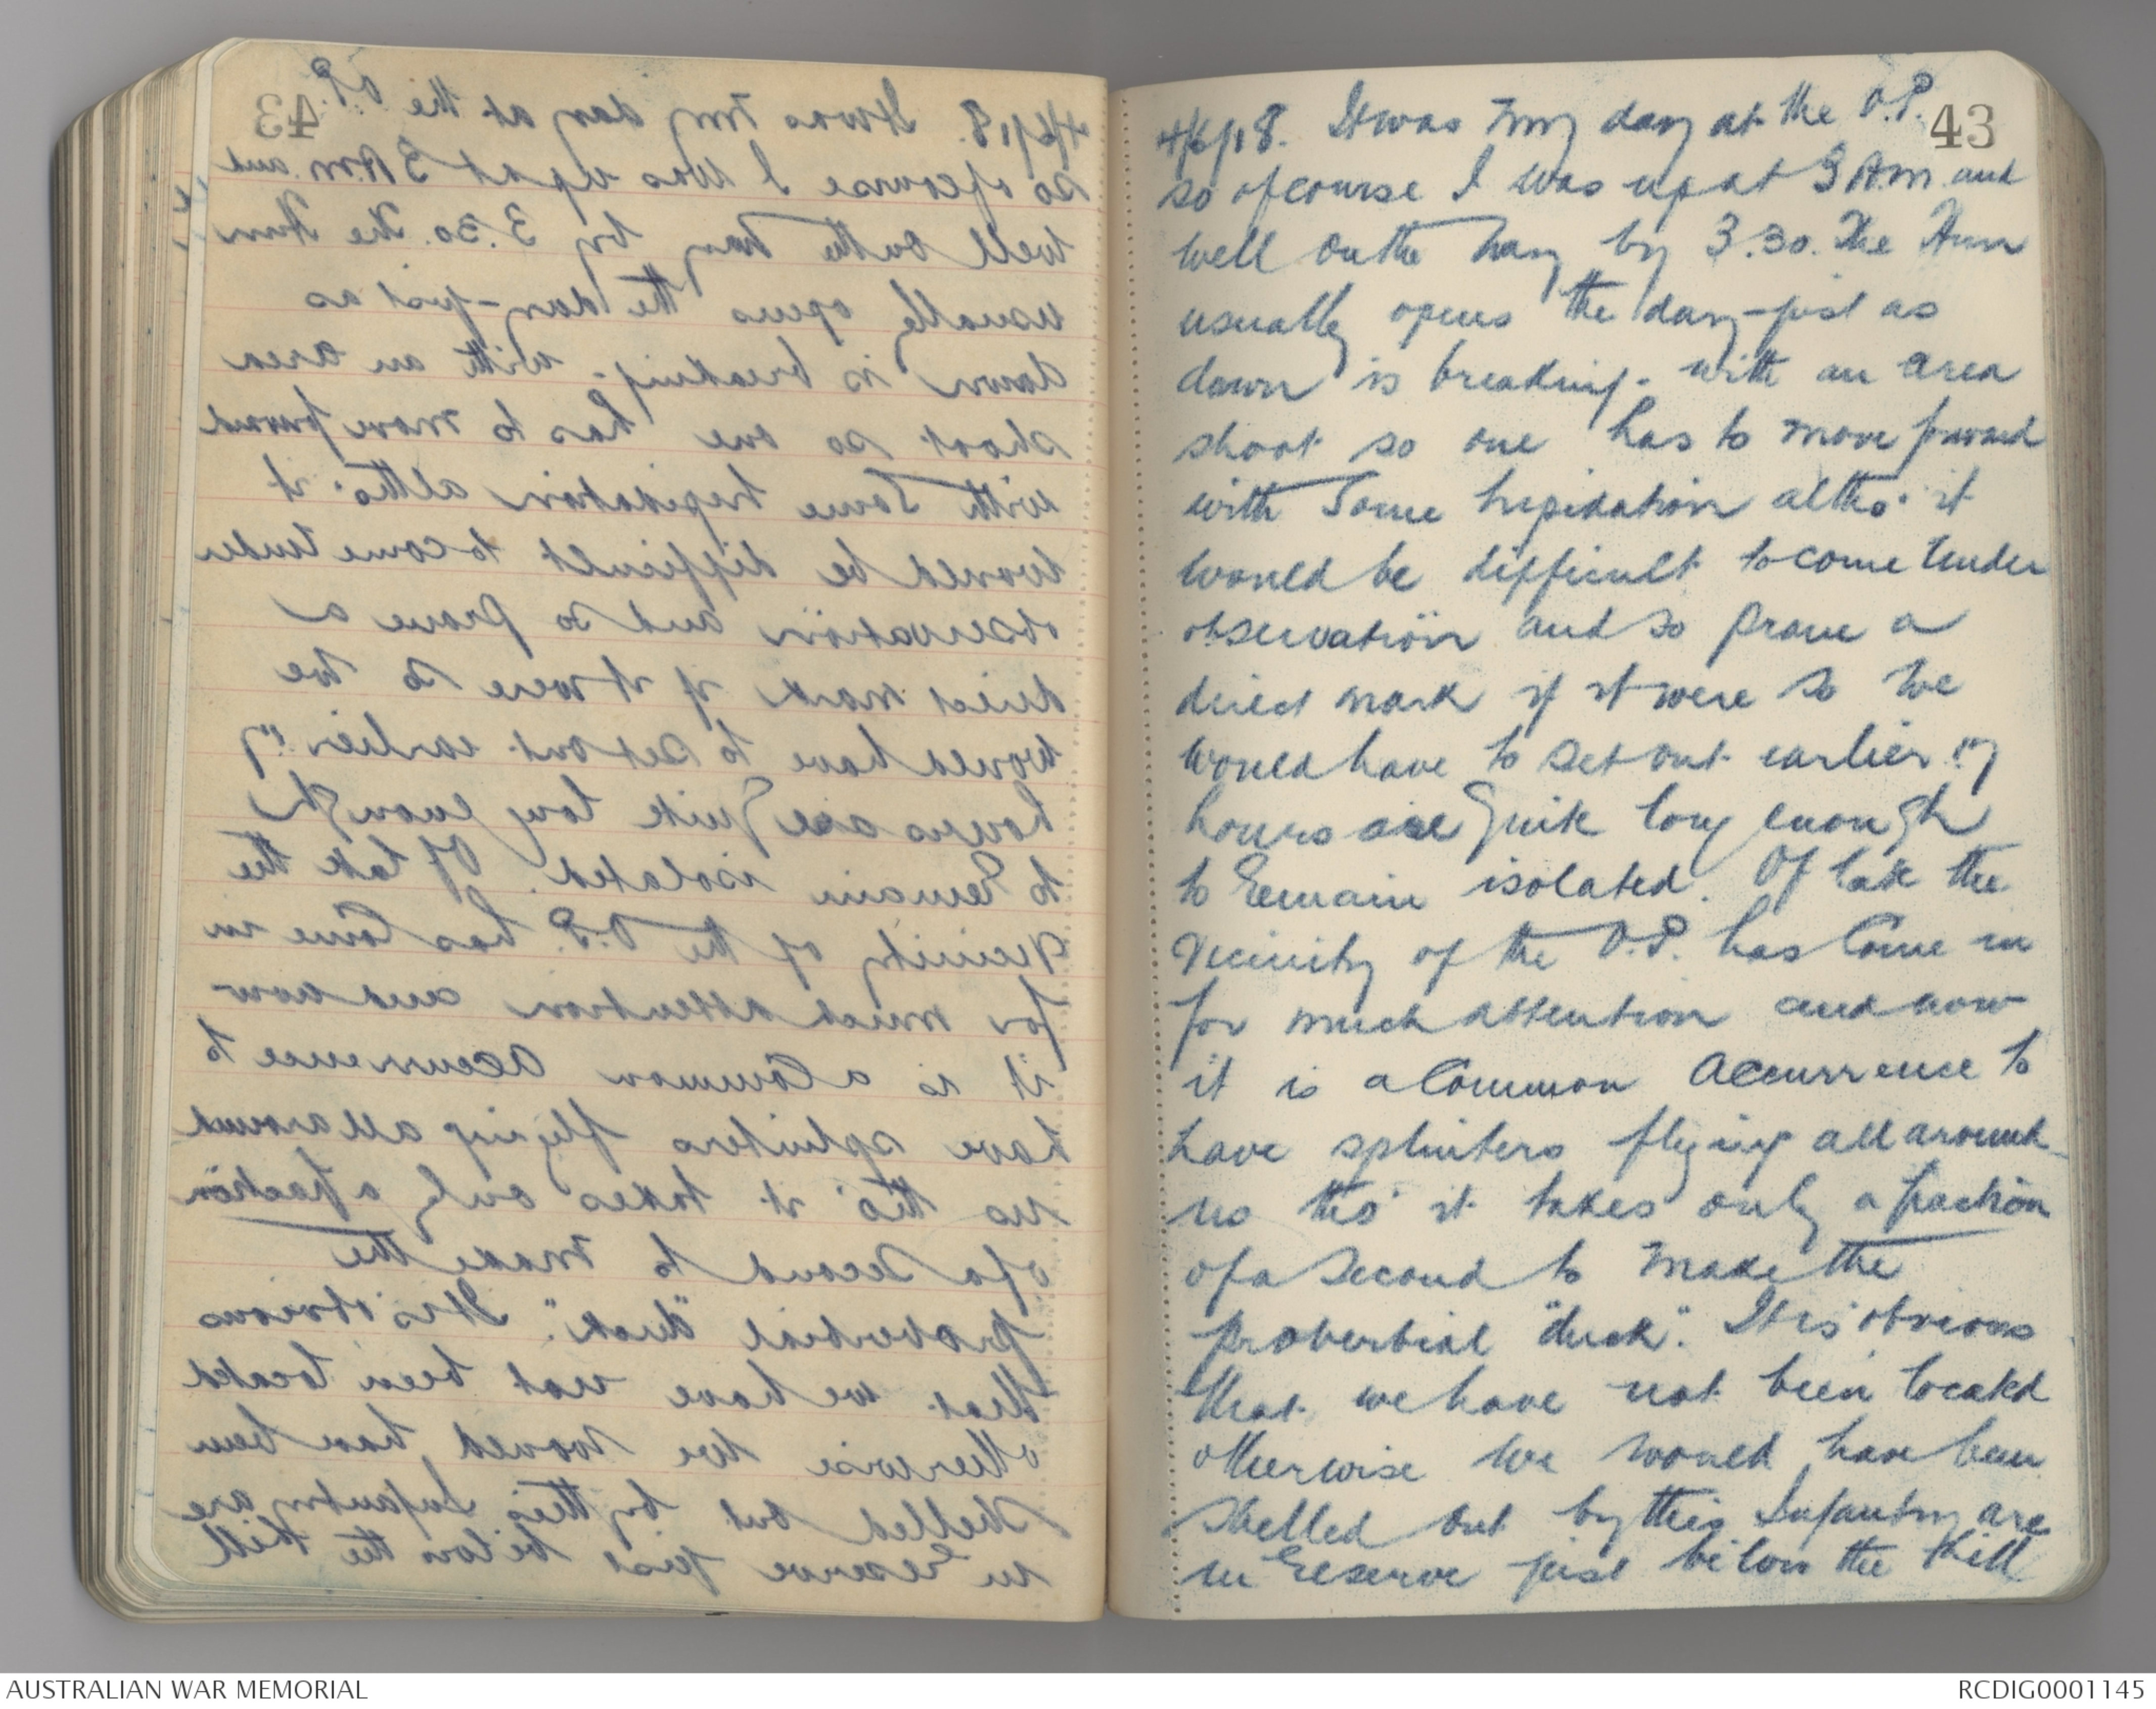 43
4/6/18. It was my day at the O.P.
so of course I was up at 3 A.m. and
well on the way by 3.30. The Hun
usually opens the day - just as
dawn is breaking - with an area
shoot so one has to move forward
with some trepidation altho' it
would be difficult to come under
observation and so prove a
direct mark if it were so we
would have to set out earlier
hours are quite long enough
to remain isolated. Of late the
vicinity of the O.P. has come in
for much attention and now
it is a common occurrence to
have splinters flying all around
us tho' it takes only a fraction
of a second to make the
proverbial "duck". It is obvious
that we have not been located
otherwise we would have been
shelled out by this Infantry are
in reserve just below the Hill
AUSTRALIAN WAR MEMORIAL
RCDIG0001145